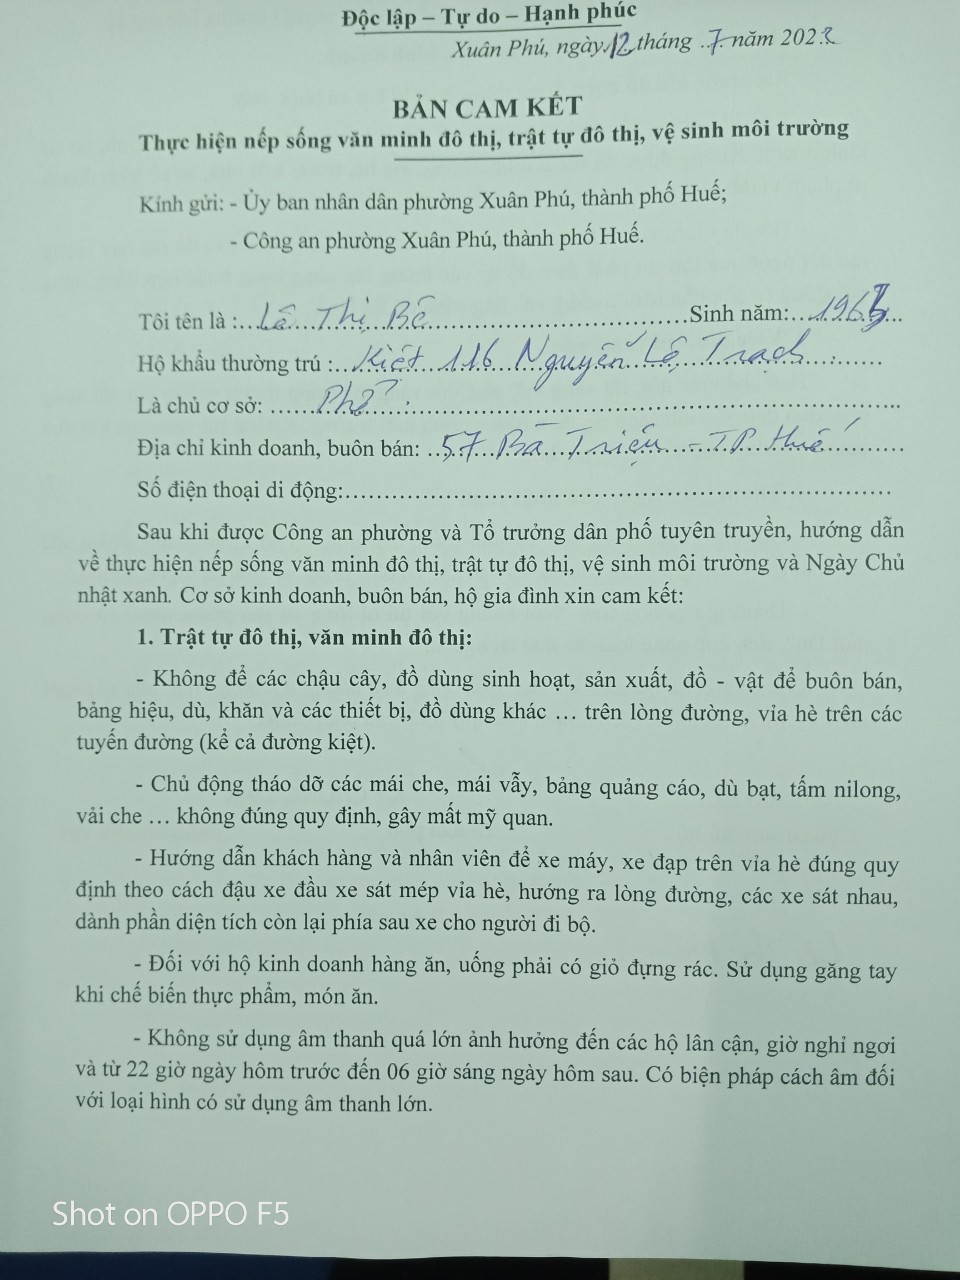 Độc lập – Tự do – Hạnh phúc
Xuân Phú, ngày 12 tháng 7 năm 2023
BẢN CAM KẾT
Thực hiện nếp sống văn minh đô thị, trật tự đô thị, vệ sinh môi trường
Kính gửi: - Ủy ban nhân dân phường Xuân Phú, thành phố Huế;
- Công an phường Xuân Phú, thành phố Huế.
Tôi tên là :...Lê Thị Bé...Sinh năm:...
Hộ khẩu thường trú :...Kiệt 116 Nguyễn Lộ Trạch...
Là chủ cơ sở: ...Phở...
Địa chỉ kinh doanh, buôn bán: ...57 Bà Triệu - TP Huế...
Số điện thoại di động:...
Sau khi được Công an phường và Tổ trưởng dân phố tuyên truyền, hướng dẫn
về thực hiện nếp sống văn minh đô thị, trật tự đô thị, vệ sinh môi trường và Ngày Chủ
nhật xanh. Cơ sở kinh doanh, buôn bán, hộ gia đình xin cam kết:
1. Trật tự đô thị, văn minh đô thị:
- Không để các chậu cây, đồ dùng sinh hoạt, sản xuất, đồ - vật để buôn bán,
bảng hiệu, dù, khăn và các thiết bị, đồ dùng khác … trên lòng đường, vỉa hè trên các
tuyến đường (kể cả đường kiệt).
- Chủ động tháo dỡ các mái che, mái vẫy, bảng quảng cáo, dù bạt, tấm nilong,
vải che … không đúng quy định, gây mất mỹ quan.
- Hướng dẫn khách hàng và nhân viên để xe máy, xe đạp trên vỉa hè đúng quy
định theo cách đậu xe đầu xe sát mép vỉa hè, hướng ra lòng đường, các xe sát nhau,
dành phần diện tích còn lại phía sau xe cho người đi bộ.
- Đối với hộ kinh doanh hàng ăn, uống phải có giỏ đựng rác. Sử dụng găng tay
khi chế biến thực phẩm, món ăn.
- Không sử dụng âm thanh quá lớn ảnh hưởng đến các hộ lân cận, giờ nghỉ ngơi
và từ 22 giờ ngày hôm trước đến 06 giờ sáng ngày hôm sau. Có biện pháp cách âm đối
với loại hình có sử dụng âm thanh lớn.
Shot on OPPO F5